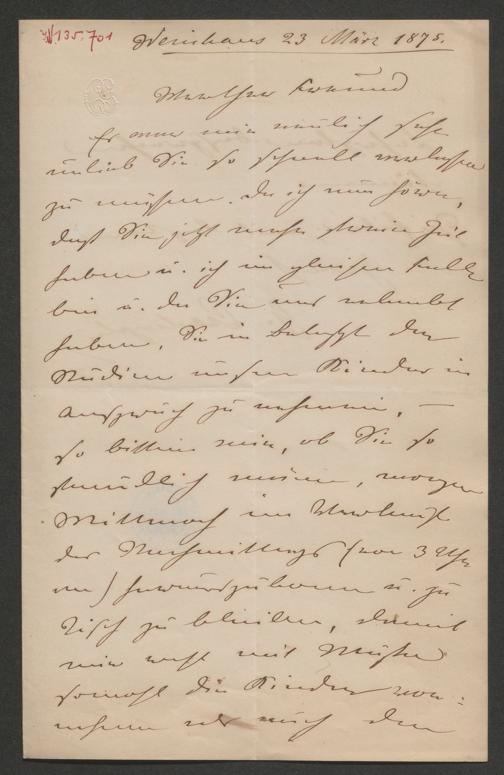 N 135.701
Weinhaus 23 März 1875.
Werther Freund
Es war mir neulich sehr
unlieb Sie so schnell verlassen
zu müssen. Da ich nun höre,
daß Sie jetzt mehr freie Zeit
haben u. ich im gleichen Falle
bin u. da Sie uns erlaubt
haben, Sie in Betreff der
Studien unsrer Kinder in
Anspruch zu nehmen, —
so bitten wir, ob Sie so
freundlich wären, morgen
Mittwoch im Verlauf
des Nachmittags (von 3 Uhr
an) herauszukommen u. zu
Tisch zu bleiben, damit
wir recht mit Muße
sowohl die Kinder vor=
nehmen als auch den